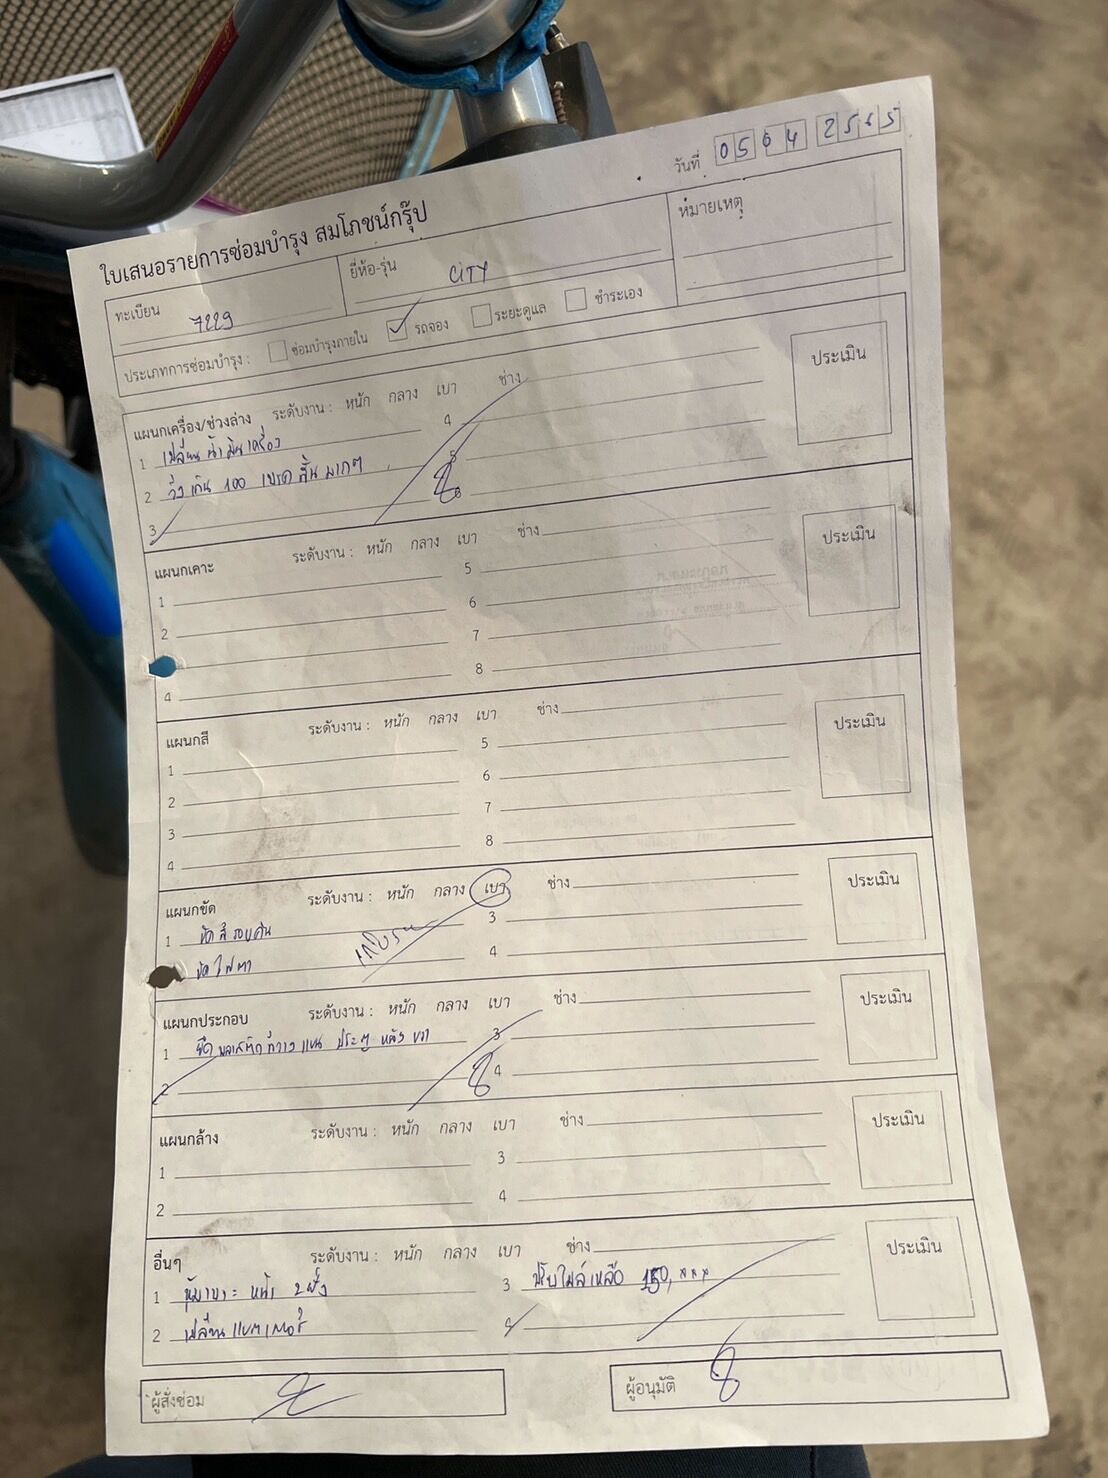 วันที่ 05 04 2565
ใบเสนอรายการซ่อมบำรุง สมโภชน์กรุ๊ป
ทะเบียน 7229 ยี่ห้อ-รุ่น CITY หมายเหตุ
ประเภทการซ่อมบำรุง : ซ่อมบำรุงภายใน รถจอง ระยะดูแล ชำระเอง
แผนกเครื่อง/ช่วงล่าง ระดับงาน : หนัก กลาง เบา ช่าง ประเมิน
1 เปลี่ยนน้ำมันเครื่อง 4
2 วิ่งเกิน 100 เบรคสั่นมากๆ 5
3 6
แผนกเคาะ ระดับงาน : หนัก กลาง เบา ช่าง ประเมิน
1 5
2 6
7
4 8
แผนกสี ระดับงาน : หนัก กลาง เบา ช่าง ประเมิน
1 5
2 6
3 7
4 8
แผนกขัด ระดับงาน : หนัก กลาง เบา ช่าง ประเมิน
1 ขัดสีรอบคัน 3
ขัดไฟตา 4
แผนกประกอบ ระดับงาน : หนัก กลาง เบา ช่าง ประเมิน
1 ยึดพลาสติกที่วางแขน ประตูหลังขวา 3
2 4
แผนกล้าง ระดับงาน : หนัก กลาง เบา ช่าง ประเมิน
1 3
2 4
อื่นๆ ระดับงาน : หนัก กลาง เบา ช่าง ประเมิน
1 หุ้มเบาะหน้า 2ฝั่ง 3 ปรับไมล์เหลือ 150,xxx
2 เปลี่ยนแบตเตอรี่ 4
ผู้สั่งซ่อม ผู้อนุมัติ